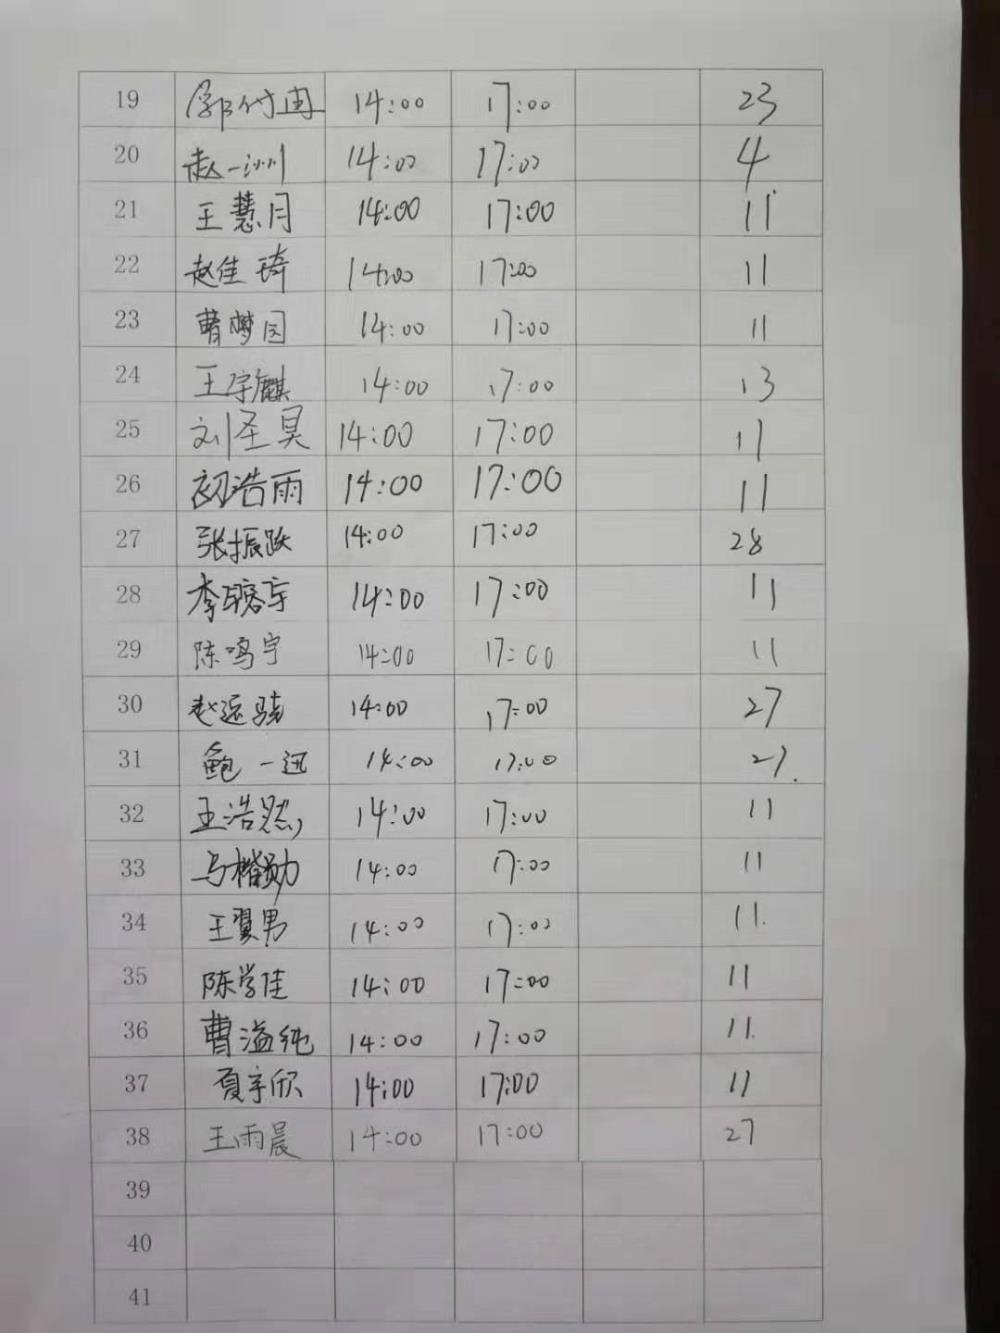 19 郭付国 14:00 17:00 23
20 赵一洲 14:00 17:00 4
21 王慧月 14:00 17:00 11
22 赵佳琦 14:00 17:00 11
23 曹梦园 14:00 17:00 11
24 王宇麒 14:00 17:00 13
25 刘圣昊 14:00 17:00 11
26 初浩雨 14:00 17:00 11
27 张振跃 14:00 17:00 28
28 李 14:00 17:00 11
29 陈鸣宇 14:00 17:00 11
30 赵运骁 14:00 17:00 27
31 鲍一迅 14:00 17:00 27.
32 王浩然 14:00 17:00 11
33 马楷勋 14:00 17:00 11
34 王翼男 14:00 17:00 11.
35 陈学佳 14:00 17:00 11
36 曹溢纯 14:00 17:00 11.
37 夏宇欣 14:00 17:00 11
38 王雨晨 14:00 17:00 27
39
40
41